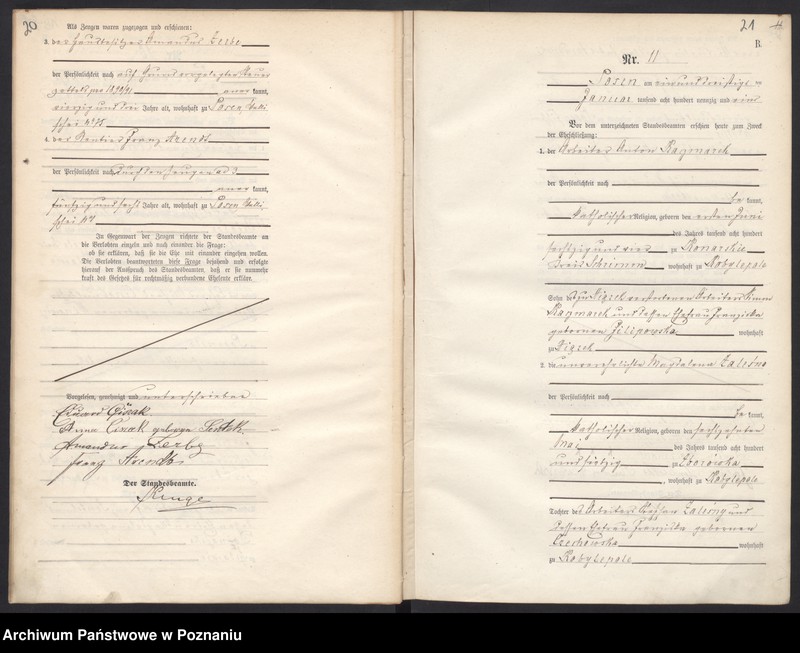 20
Als Zeugen waren zugezogen und erschienen:
3. der Hausbesitzer Amandus Zerbe
der Persönlichkeit nach auf Grund vorgelegter Steuer
zettels pro 1890/91 aner kannt,
vierzig und drei Jahre alt, wohnhaft zu Posen, Walli
schei № 75
4. der Rentier Franz Arendt
der Persönlichkeit nach durch den Zeugen ad 3
aner kannt,
fünfzig und sechs Jahre alt, wohnhaft zu Posen Walli
schei №
In Gegenwart der Zeugen richtete der Standesbeamte an
die Verlobten einzeln und nach einander die Frage:
ob sie erklären, daß sie die Ehe mit einander eingehen wollen.
Die Verlobten beantworteten diese Frage bejahend und erfolgte
hierauf der Ausspruch des Standesbeamten, daß er sie nunmehr
kraft des Gesetzes für rechtmäßig verbundene Eheleute erkläre.
Vorgelesen, genehmigt und unterschrieben
Eduard
Anna geborene
Amandus Zerbe
Franz Arendt
Der Standesbeamte.
21
B.
Nr. 11
Posen am einunddreißigsten
Januar tausend acht hundert neunzig und eins
Vor dem unterzeichneten Standesbeamten erschien heute zum Zweck
der Eheschließung:
1. der Arbeiter Anton Kaczmarek
der Persönlichkeit nach
be kannt,
katholischer Religion, geboren den ersten Juni
des Jahres tausend acht hundert
sechszig und vier zu Konarskie
Kreis Schrimm wohnhaft zu Kobylepole
Sohn des zu verstorbenen Arbeiters
Kaczmarek und dessen Ehefrau Franziska
geborenen wohnhaft
zu
2. die unverehelichte Magdalena
der Persönlichkeit nach
be kannt,
katholischer Religion, geboren den sechszehnten
Mai des Jahres tausend acht hundert
und siebzig zu
, wohnhaft zu Kobylepole
Tochter des Arbeiters und
dessen Ehefrau Franziska geborenen
Czechowska wohnhaft
zu Kobylepole
Archiwum Państwowe w Poznaniu